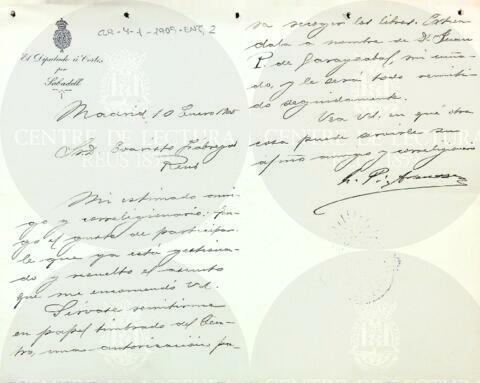 CR-4-1-1905-ENT, 2
El Diputado á Cortes
por
Sabadell
Madrid 10 Enero
Sr. D. Evaristo Fábregas
Reus
Mi estimado ami-
go y correligionario: ten-
go el gusto de participar-
le que ya está gestiona-
do y resuelto el asunto
que me encomendó Vd.
Sírvase remitirme
en papel timbrado del Cen-
tro, una autorización pa-
ra recoger los libros. Extien-
dala a nombre de D. Juan
P. de Garayzabal, mi cuña-
do, y le será todo remiti-
do seguidamente.
Vea Vd. en qué otra
cosa puede servirle su
afmo amigo y correligionario
CENTRE DE LECTURA
REUS 1859
CENTRE DE LECTURA
REUS 1859